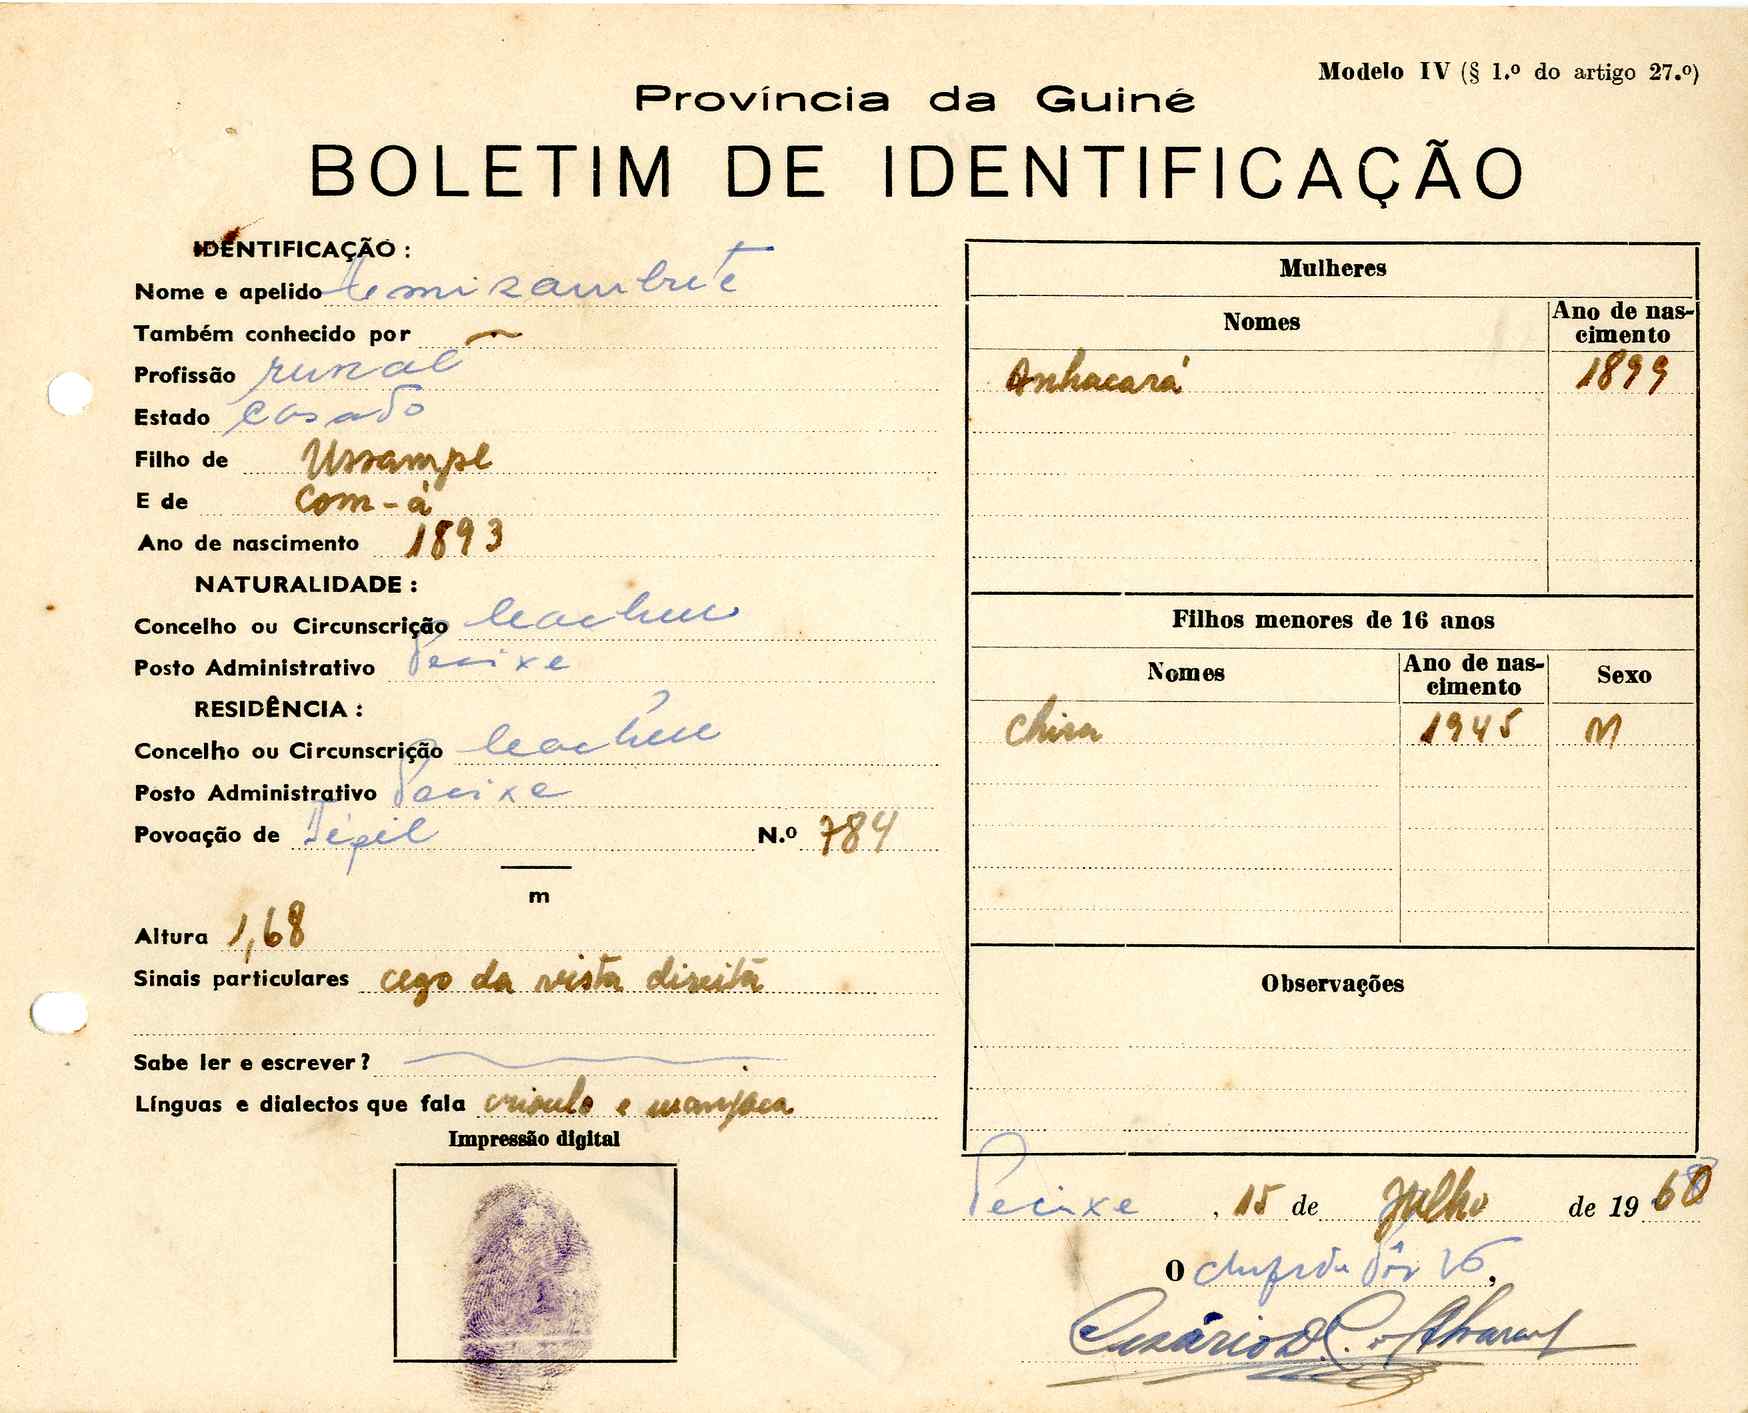 Modelo IV (§ 1.º do artigo 27.º)
Província da Guiné
BOLETIM DE IDENTIFICAÇÃO
IDENTIFICAÇÃO :
Nome e apelido
Também conhecido por
Profissão rural
Estado casado
Filho de Ussampe
E de Com-á
Ano de nascimento 1893
NATURALIDADE :
Concelho ou Circunscrição Cacheu
Posto Administrativo Pecixe
RESIDÊNCIA :
Concelho ou Circunscrição Cacheu
Posto Administrativo Pecixe
Povoação de N.º 784
m
Altura 1,68
Sinais particulares cego da vista direita
Sabe ler e escrever ?
Línguas e dialectos que fala crioulo e manjaca
Impressão digital
Mulheres
Nomes Ano de nas-
cimento
Anhacará 1899
Filhos menores de 16 anos
Nomes Ano de nas-
cimento Sexo
1945 M
Observações
Pecixe , 15 de Julho de 1960
O ,
Cesário